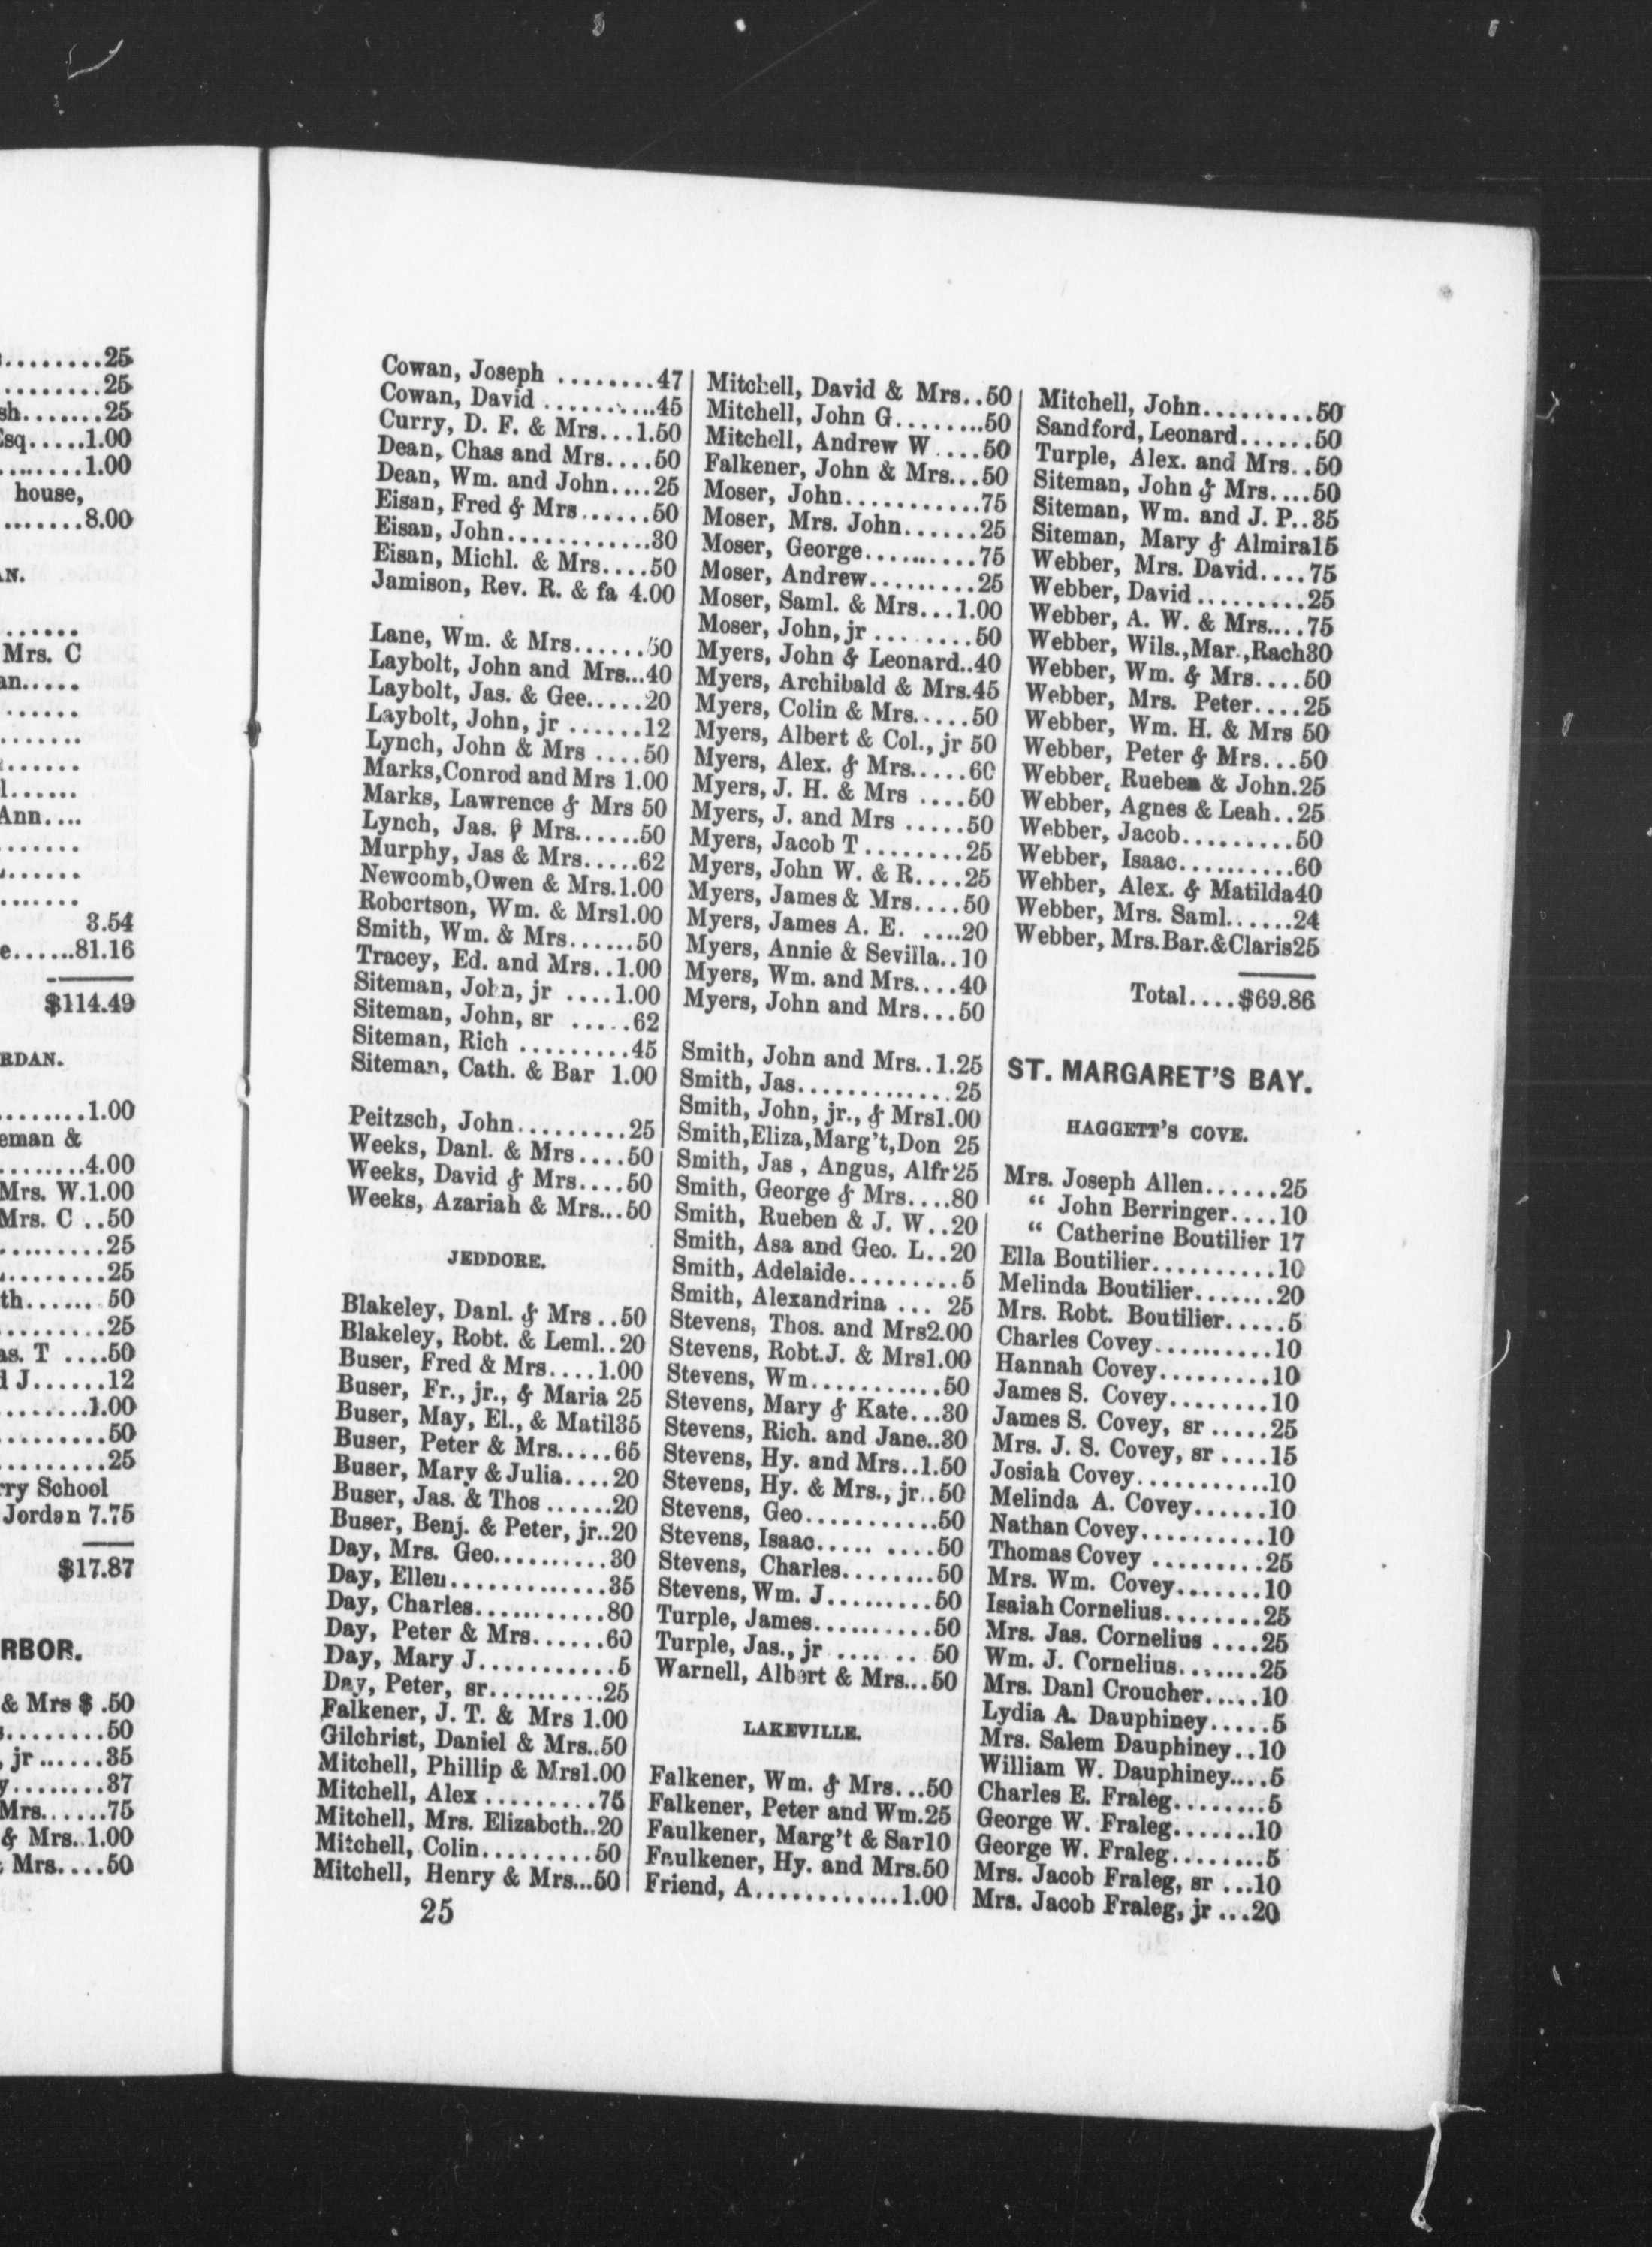 .........25
.........25
sh.......25
Esq.....1.00
........1.00
house,
........8.00
AN.
.......
Mrs. C
an.....
.......
.......
.......
l......
Ann....
.......
.......
.......
3.54
e......81.16
$114.49
RDAN.
........1.00
eman &
........4.00
Mrs. W.1.00
Mrs. C ..50
..........25
.........25
th....... 50
.........25
as. T ....50
d J......12
........1.00
.........50
.........25
rry School
Jordan 7.75
$17.87
RBOR.
& Mrs $ .50
.........50
, jr ......35
y.........37
Mrs......75
& Mrs..1.00
Mrs....50
Cowan, Joseph ........47
Cowan, David ..........45
Curry, D. F. & Mrs...1.50
Dean, Chas and Mrs....50
Dean, Wm. and John....25
Eisan, Fred & Mrs......50
Eisan, John............30
Eisan, Michl. & Mrs....50
Jamison, Rev. R. & fa 4.00
Lane, Wm. & Mrs......50
Laybolt, John and Mrs...40
Laybolt, Jas. & Gee.....20
Laybolt, John, jr .......12
Lynch, John & Mrs ....50
Marks,Conrod and Mrs 1.00
Marks, Lawrence & Mrs 50
Lynch, Jas. & Mrs......50
Murphy, Jas & Mrs.....62
Newcomb,Owen & Mrs.1.00
Robertson, Wm. & Mrs1.00
Smith, Wm. & Mrs......50
Tracey, Ed. and Mrs..1.00
Siteman, John, jr ....1.00
Siteman, John, sr .....62
Siteman, Rich .........45
Siteman, Cath. & Bar 1.00
Peitzsch, John.........25
Weeks, Danl. & Mrs....50
Weeks, David & Mrs....50
Weeks, Azariah & Mrs...50
JEDDORE.
Blakeley, Danl. & Mrs ..50
Blakeley, Robt. & Leml..20
Buser, Fred & Mrs....1.00
Buser, Fr., jr., & Maria 25
Buser, May, El., & Matil35
Buser, Peter & Mrs.....65
Buser, Mary & Julia....20
Buser, Jas. & Thos ......20
Buser, Benj. & Peter, jr..20
Day, Mrs. Geo..........30
Day, Ellen.............35
Day, Charles...........80
Day, Peter & Mrs......60
Day, Mary J...........5
Day, Peter, sr..........25
Falkener, J. T. & Mrs 1.00
Gilchrist, Daniel & Mrs..50
Mitchell, Phillip & Mrs1.00
Mitchell, Alex .........75
Mitchell, Mrs. Elizabeth..20
Mitchell, Colin.........50
Mitchell, Henry & Mrs...50
25
Mitchell, David & Mrs..50
Mitchell, John G........50
Mitchell, Andrew W....50
Falkener, John & Mrs...50
Moser, John...........75
Moser, Mrs. John......25
Moser, George.........75
Moser, Andrew.........25
Moser, Saml. & Mrs...1.00
Moser, John, jr ........50
Myers, John & Leonard..40
Myers, Archibald & Mrs.45
Myers, Colin & Mrs.....50
Myers, Albert & Col., jr 50
Myers, Alex. & Mrs.....60
Myers, J. H. & Mrs ....50
Myers, J. and Mrs .....50
Myers, Jacob T ........25
Myers, John W. & R....25
Myers, James & Mrs....50
Myers, James A. E. .....20
Myers, Annie & Sevilla..10
Myers, Wm. and Mrs....40
Myers, John and Mrs...50
Smith, John and Mrs..1.25
Smith, Jas.............25
Smith, John, jr., & Mrs1.00
Smith,Eliza,Marg't,Don 25
Smith, Jas , Angus, Alfr25
Smith, George & Mrs....80
Smith, Rueben & J. W..20
Smith, Asa and Geo. L..20
Smith, Adelaide.........5
Smith, Alexandrina ... 25
Stevens, Thos. and Mrs2.00
Stevens, Robt.J. & Mrs1.00
Stevens, Wm...........50
Stevens, Mary & Kate...30
Stevens, Rich. and Jane..30
Stevens, Hy. and Mrs..1.50
Stevens, Hy. & Mrs., jr..50
Stevens, Geo...........50
Stevens, Isaac..... ....50
Stevens, Charles........50
Stevens, Wm. J.........50
Turple, James..........50
Turple, Jas., jr .... .. 50
Warnell, Albert & Mrs...50
LAKEVILLE.
Falkener, Wm. & Mrs...50
Falkener, Peter and Wm.25
Faulkener, Marg't & Sar10
Faulkener, Hy. and Mrs.50
Friend, A............1.00
Mitchell, John.........50
Sandford, Leonard......50
Turple, Alex. and Mrs..50
Siteman, John & Mrs....50
Siteman, Wm. and J. P..35
Siteman, Mary & Almira15
Webber, Mrs. David....75
Webber, David .........25
Webber, A. W. & Mrs....75
Webber, Wils.,Mar.,Rach30
Webber, Wm. & Mrs....50
Webber, Mrs. Peter....25
Webber, Wm. H. & Mrs 50
Webber, Peter & Mrs...50
Webber, Rueben & John.25
Webber, Agnes & Leah..25
Webber, Jacob.........50
Webber, Isaac..........60
Webber, Alex. & Matilda40
Webber, Mrs. Saml......24
Webber, Mrs.Bar.&Claris25
Total....$69.86
ST. MARGARET'S BAY.
HAGGETT'S COVE.
Mrs. Joseph Allen......25
“ John Berringer....10
“ Catherine Boutilier 17
Ella Boutilier..........10
Melinda Boutilier.......20
Mrs. Robt. Boutilier.....5
Charles Covey..........10
Hannah Covey.........10
James S. Covey........10
James S. Covey, sr .....25
Mrs. J. S. Covey, sr ....15
Josiah Covey...........10
Melinda A. Covey......10
Nathan Covey..........10
Thomas Covey .........25
Mrs. Wm. Covey.......10
Isaiah Cornelius........25
Mrs. Jas. Cornelius ....25
Wm. J. Cornelius.......25
Mrs. Danl Croucher.....10
Lydia A. Dauphiney.....5
Mrs. Salem Dauphiney..10
William W. Dauphiney....5
Charles E. Fraleg........5
George W. Fraleg.......10
George W. Fraleg........5
Mrs. Jacob Fraleg, sr ...10
Mrs. Jacob Fraleg, jr ...20